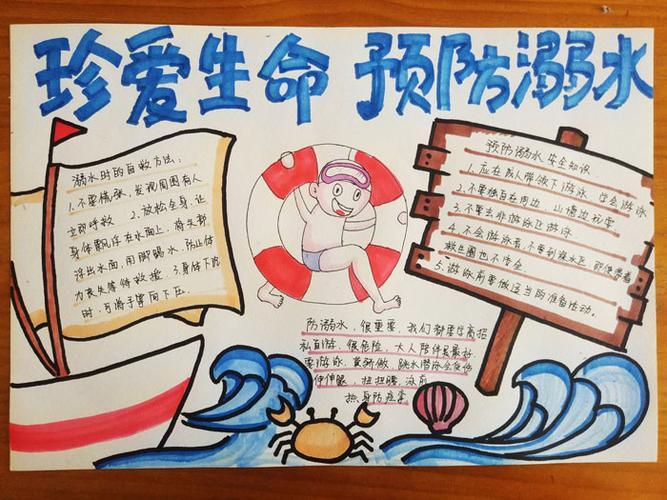 珍爱生命 预防溺水
溺水时的自救方法:
1.不要慌张,发现周围有人
立即呼救 2.放松全身,让
身体飘浮在水面上,将头部
浮出水面,用脚踢水,防止体
力丧失等待救援 3.身体下沉
时,可将手掌向下压.
预防溺水安全知识
1.应在成人带领下游泳 学会游泳
2.不要独自在河边 山塘边玩耍
3.不要去非游泳区游泳
4.不会游泳者,不要到深水区,即使带着
救生圈也不安全.
5.游泳前要做适当的准备活动.
防溺水,很重要,我们都要学高招
私自游,很危险,大人陪伴是最好
要游泳,莫骄傲,跳水潜泳会
伸伸腿,扭扭腰,泳前
热身防痉挛